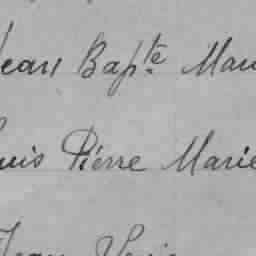 Jean Bapte Mau
Louis Pierre Marie
Jean